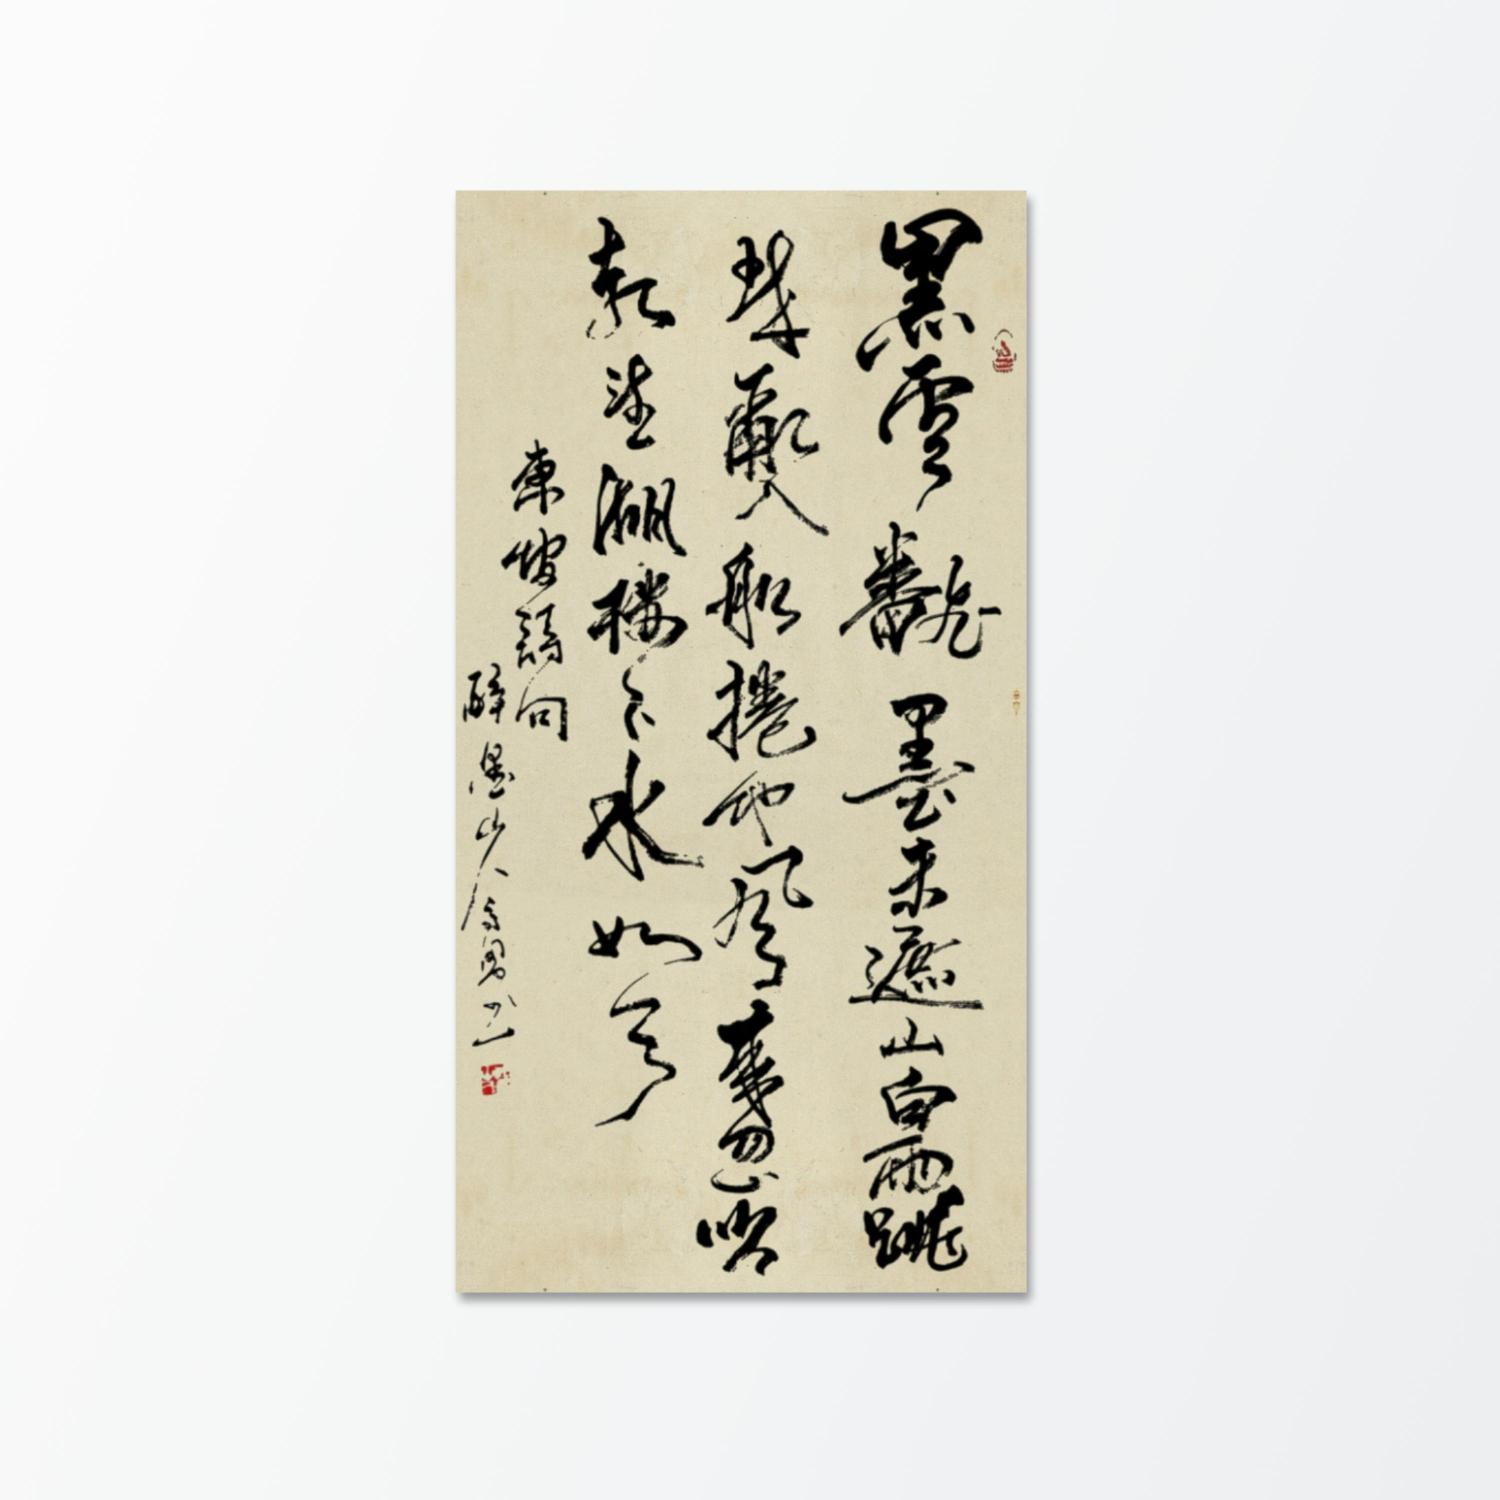 黑雲翻墨未遮山白雨跳
珠亂入船捲地風來忽吹
散望湖樓下水如天
東坡詩句
醉墨山人
書